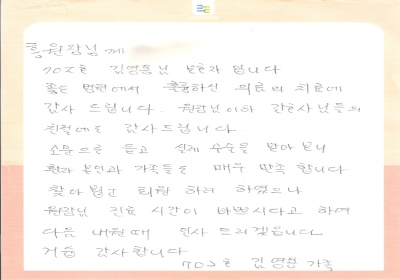 홍원장님께
702호 김영송님 보호자 랍니다
좋은 병원에서 훌륭하신 의료와 치료에
감사 드립니다. 원장님이하 간호사님들의
친절에도 감사드립니다.
소문으로 듣고 실제 수술을 받아 보니
환자 본인과 가족들은 매우 만족 합니다
찾아뵙고 퇴원 하려 하였으나
원장님 진료 시간이 바쁘시다고 하여
다음 내원때 인사 드리겠읍니다
거듭 감사합니다
702호 김영송 가족